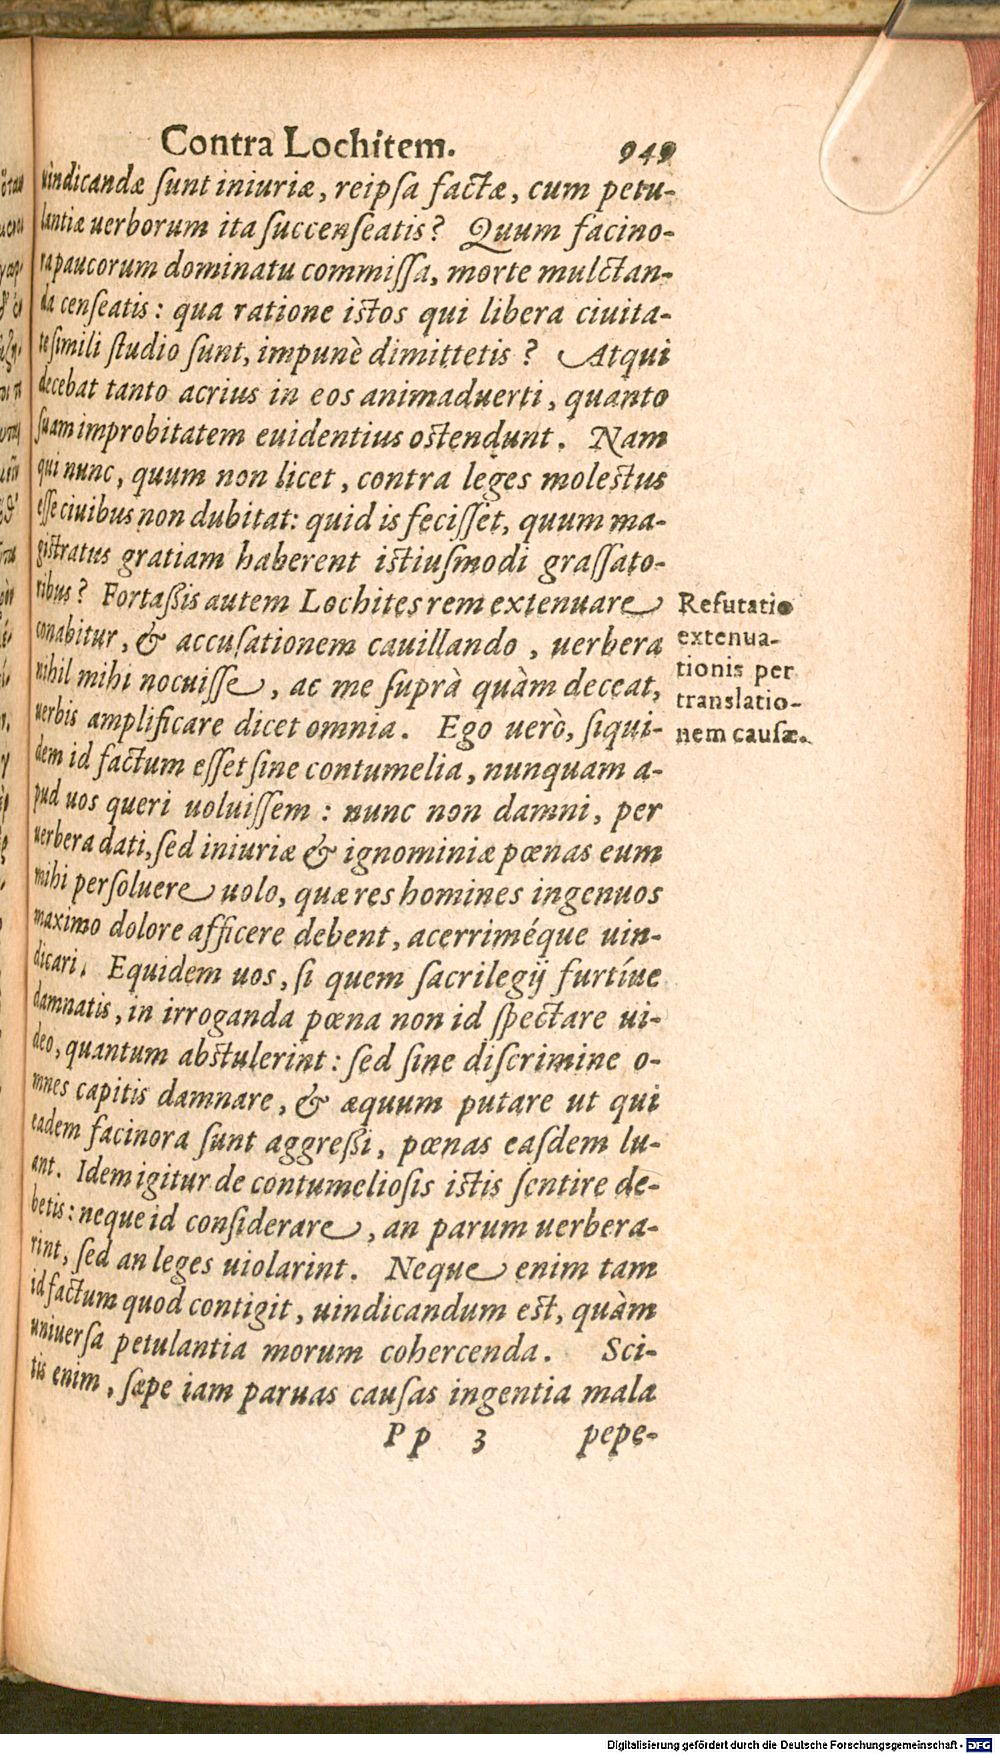 Contra Lochitem. 949
uindicandæ sunt iniuriæ, reipsa factæ, cum petu-
lantiæ uerborum ita succenseatis? Quum facino-
ra paucorum dominatu commissa, morte mulctan-
da censeatis: qua ratione istos qui libera ciuita-
te simili studio sunt, impunè dimittetis? Atqui
decebat tanto acrius in eos animaduerti, quanto
suam improbitatem euidentius ostendunt. Nam
qui nunc, quum non licet, contra leges molestus
esse ciuibus non dubitat: quid is fecisset, quum ma-
gistratus gratiam haberent istiusmodi grassato-
ribus? Fortassis autem Lochites rem extenuare
conabitur, & accusationem cauillando, uerbera
nihil mihi nocuisse, ac me suprà quàm deceat,
uerbis amplificare dicet omnia. Ego uerò, siqui-
dem id factum esset sine contumelia, nunquam a-
pud uos queri uoluissem: nunc non damni, per
uerbera dati, sed iniuriæ & ignominiæ pœnas eum
mihi persoluere uolo, quæ res homines ingenuos
maximo dolore afficere debent, acerriméque uin-
dicari. Equidem uos, si quem sacrilegij furtíue
damnatis, in irroganda pœna non id spectare ui-
deo, quantum abstulerint: sed sine discrimine o-
mnes capitis damnare, & æquum putare ut qui
eadem facinora sunt aggressi, pœnas easdem lu-
ant. Idem igitur de contumeliosis istis sentire de-
betis: neque id considerare, an parum uerbera-
rint, sed an leges uiolarint. Neque enim tam
id factum quod contigit, uindicandum est, quàm
uniuersa petulantia morum cohercenda. Sci-
tis enim, sæpe iam paruas causas ingentia mala
Pp 3 pepe-
Refutatio
extenua-
tionis per
translatio-
nem causæ.
Digitalisierung gefördert durch die Deutsche Forschungsgemeinschaft - DFG